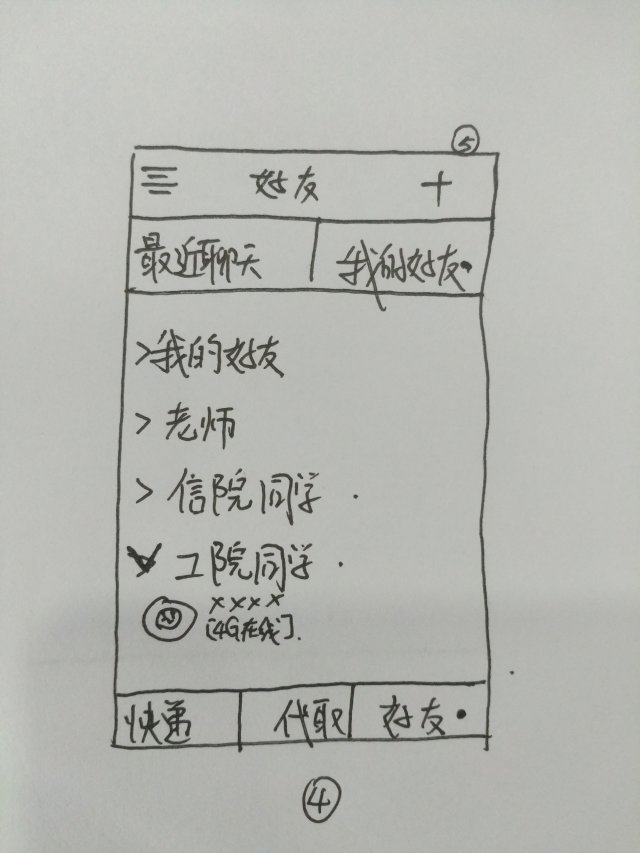 ⑤
好友 +
最近聊天 我的好友
>我的好友
> 老师
> 信院同学
工院同学
××××
[4G在线]
快递 代取 好友
④